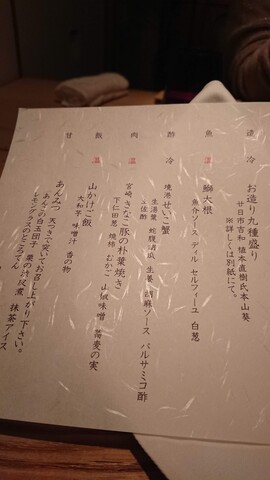 造 冷
お造り九種盛り
廿日市吉和 植本直樹氏本山葵
※詳しくは別紙にて。
魚 温
鰤大根
魚介ソース ディル セルフィーユ 白葱
酢 冷
境港せいこ蟹
生湯葉 蛇腹胡瓜 生姜 胡麻ソース バルサミコ酢
土佐酢
肉 温
宮崎きなこ豚の朴葉焼き
下仁田葱 焼柿 むかご 山椒味噌 蕎麦の実
飯 温
山かけご飯
大和芋 味噌汁 香の物
甘
あんみつ 天つきで突いてお召し上がり下さい。
あんこの白玉団子 栗の渋皮煮 抹茶アイス
レモングラスのところてん